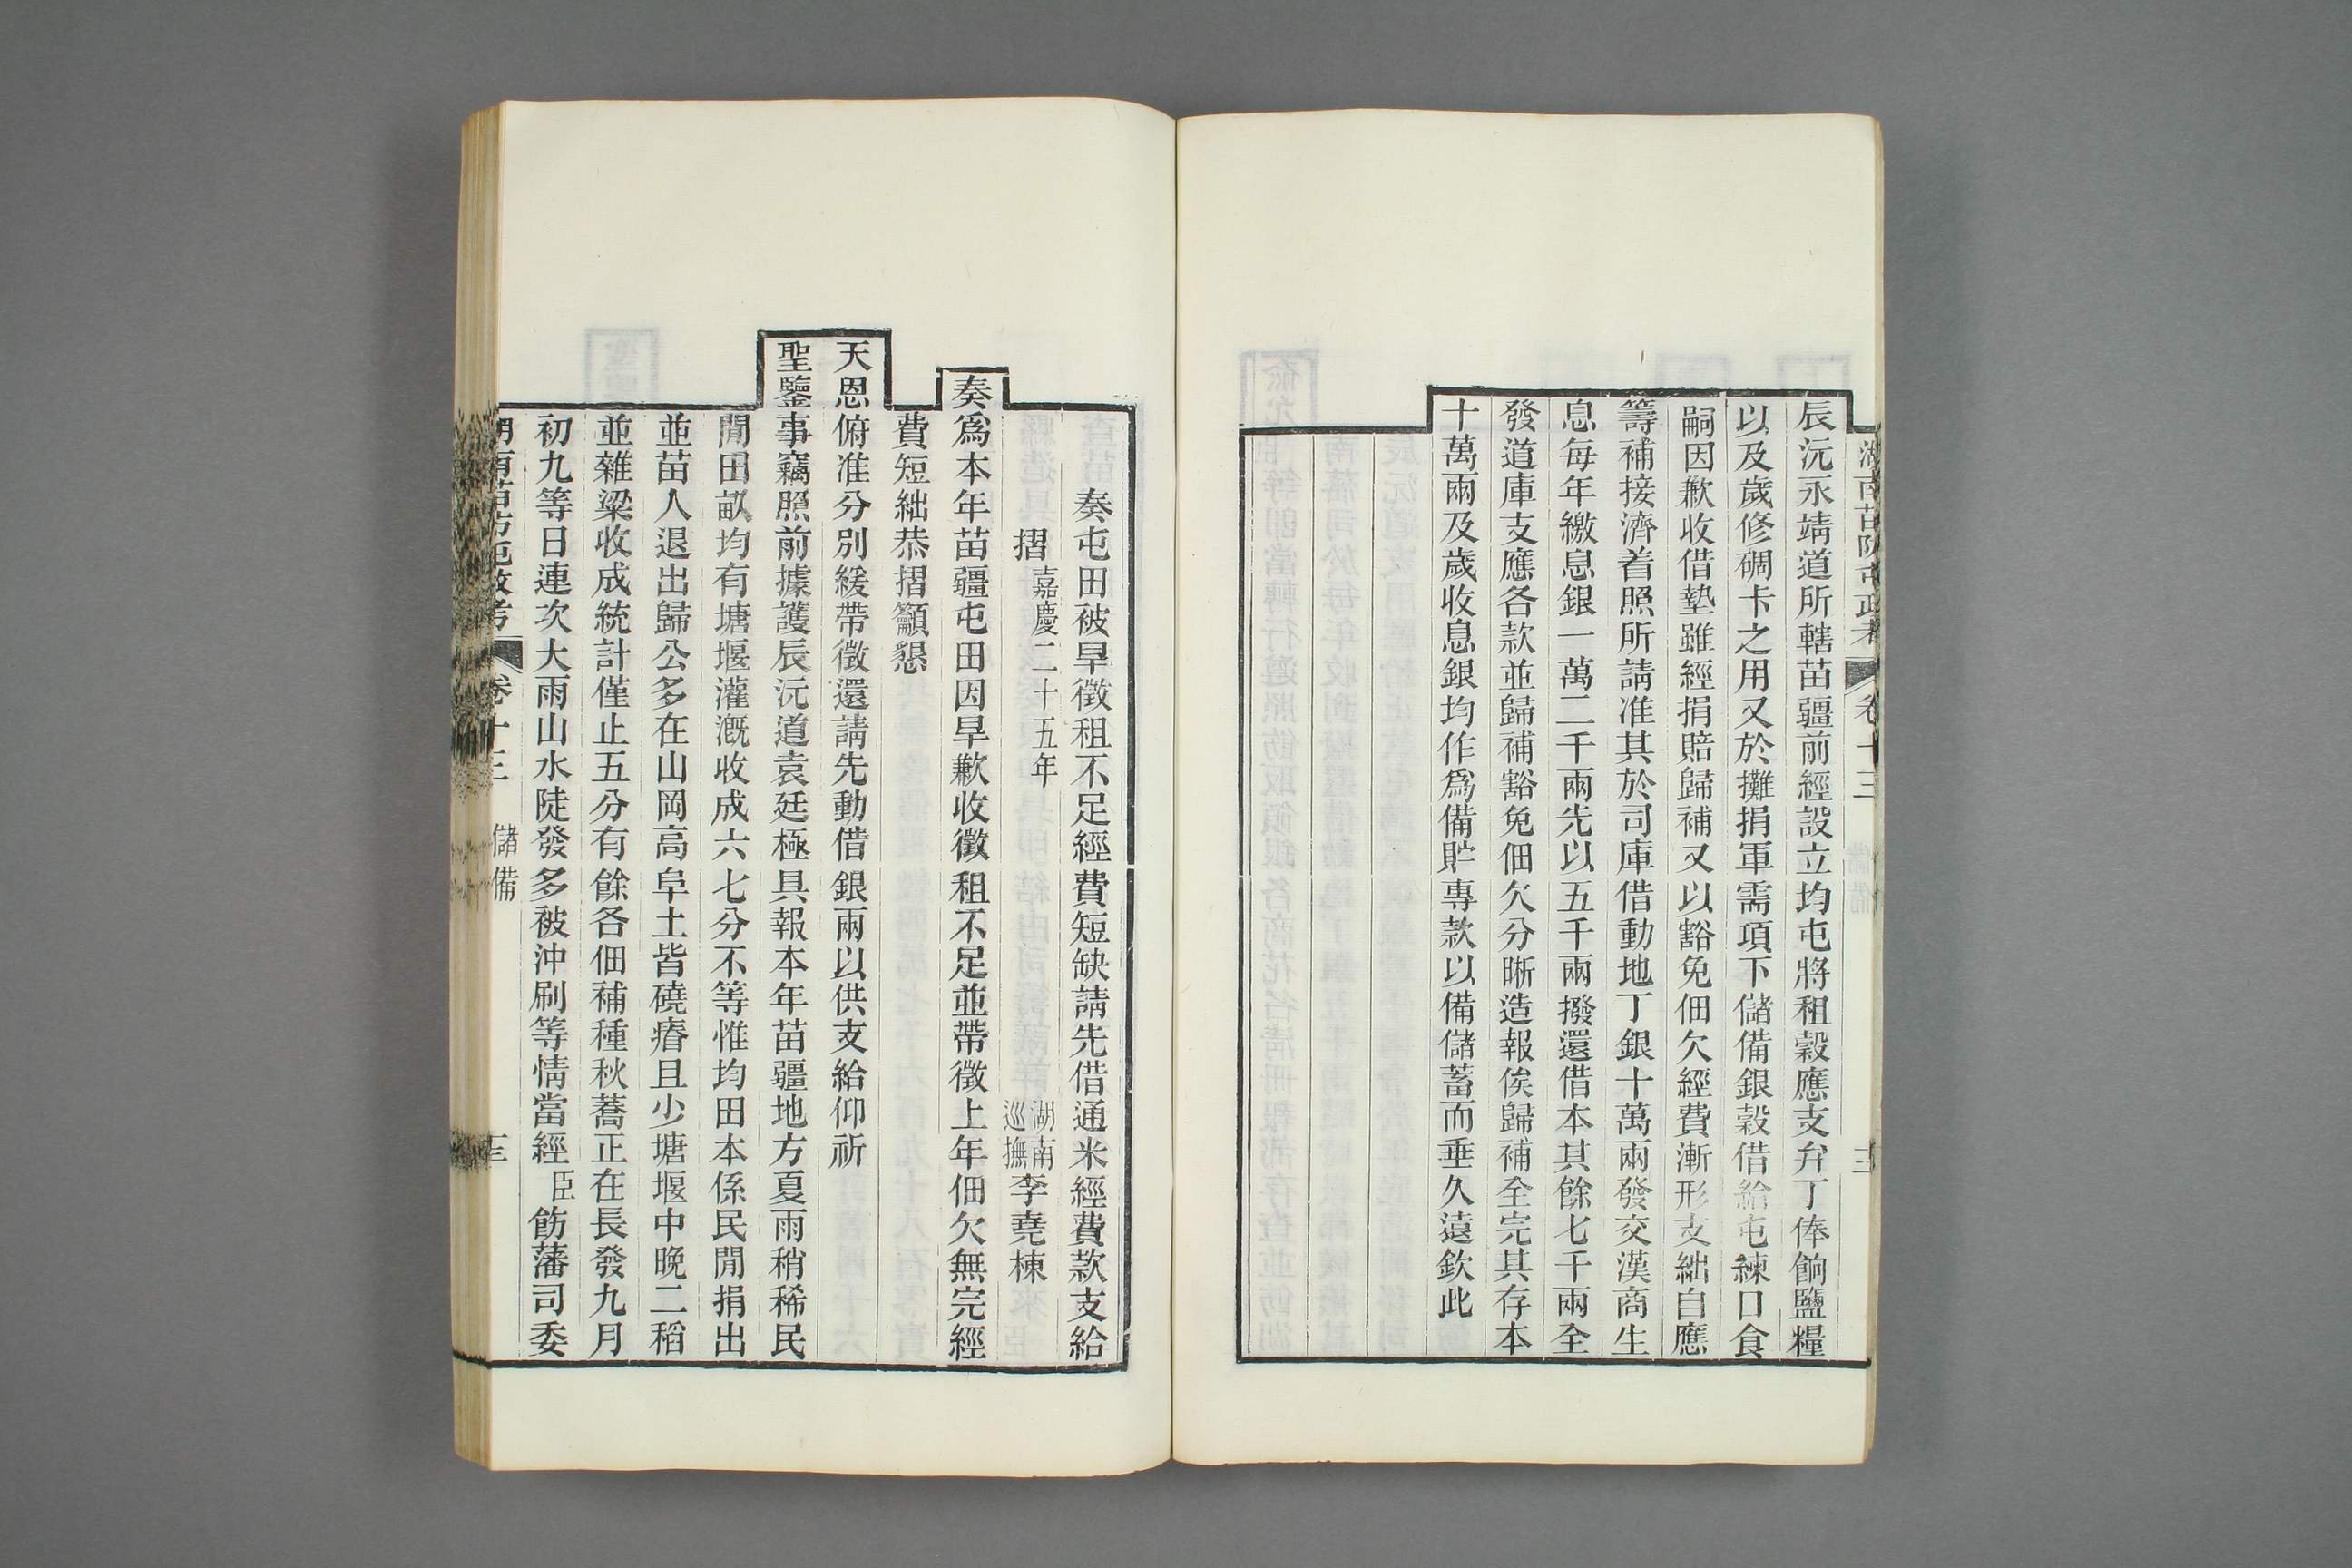 湖南苗防屯政考 卷十三 儲備 三
辰沅永靖道所轄苗疆前經設立均屯將租穀應支弁丁俸餉鹽糧
以及歲修碉卡之用又於攤捐軍需項下儲備銀穀借給屯練口食
嗣因歉收借墊雖經捐賠歸補又以豁免佃欠經費漸形支絀自應
籌補接濟着照所請准其於司庫借動地丁銀十萬兩發交漢商生
息每年繳息銀一萬二千兩先以五千兩撥還借本其餘七千兩全
發道庫支應各款並歸補豁免佃欠分晰造報俟歸補全完其存本
十萬兩及歲收息銀均作爲備貯專款以備儲蓄而垂久遠欽此
奏屯田被旱徵租不足經費短缺請先借通米經費款支給
摺 嘉慶二十五年 湖南巡撫李堯棟
奏爲本年苗疆屯田因旱歉收徵租不足並帶徵上年佃欠無完經
費短絀恭摺籲懇
天恩俯准分別緩帶徵還請先動借銀兩以供支給仰祈
聖鑒事竊照前據護辰沅道袁廷極具報本年苗疆地方夏雨稍稀民
閒田畝均有塘堰灌漑收成六七分不等惟均田本係民閒捐出
並苗人退出歸公多在山岡高阜土皆磽瘠且少塘堰中晚二稻
並雜粱收成統計僅止五分有餘各佃補種秋蕎正在長發九月
初九等日連次大雨山水陡發多被沖刷等情當經臣飭藩司委
湖南苗防屯政考 卷十三 儲備